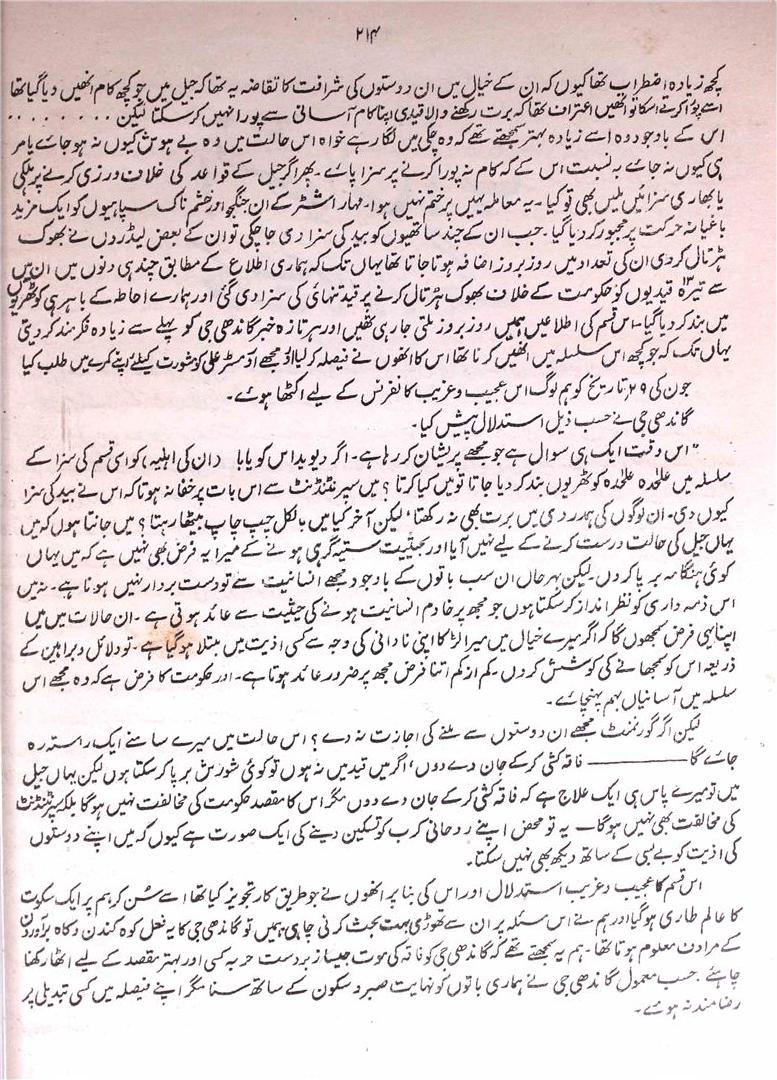 ۲۱۴
کچھ زیادہ اضطراب تھا کیوں کہ ان کے خیال میں ان دوستوں کی شرافت کا تقاضہ یہ تھا کہ جیل میں جو کچھ کام انھیں دیا گیا تھا
اسے پورا کرتے اسکا تو انھیں اعتراف تھا کہ برت رکھنے والا قیدی اپنا کام آسانی سے پورا نہیں کر سکتا لیکن ........
اس کے باوجود وہ اسے زیادہ بہتر سمجھتے تھے کہ وہ چکی میں لگا رہے خواہ اس حالت میں وہ بے ہوش کیوں نہ ہو جائے یا مر
ہی کیوں نہ جائے بہ نسبت اس کے کہ کام نہ پورا کرنے پر سزا پائے۔ پھر اگر جیل کے قواعد کی خلاف ورزی کرنے پر ہلکی
یا بھاری سزائیں ملیں بھی تو کیا۔ یہ معاملہ یہیں پر ختم نہیں ہوا۔ مہاراشٹر کے ان جنگجو اور خشم ناک سپاہیوں کو ایک مزید
باغیانہ حرکت پر مجبور کر دیا گیا۔ جب ان کے چند ساتھیوں کو بید کی سزا دی جا چکی تو ان کے بعض لیڈروں نے بھوک
ہڑتال کر دی ان کی تعداد میں روز بروز اضافہ ہوتا جاتا تھا یہاں تک کہ ہماری اطلاع کے مطابق چند ہی دنوں میں ان میں
سے تیرہ ۱۳ قیدیوں کو حکومت کے خلاف بھوک ہڑتال کرنے پر قید تنہائی کی سزا دی گئی اور ہمارے احاطہ کے باہر ہی کوٹھریوں
میں بند کر دیا گیا۔ اس قسم کی اطلاعیں ہمیں روز بروز ملتی جا رہی تھیں اور ہر تازہ خبر گاندھی جی کو پہلے سے زیادہ فکرمند کر دیتی
یہاں تک کہ جو کچھ اس سلسلہ میں انھیں کرنا تھا اس کا انھوں نے فیصلہ کر لیا اور مجھے اور مسٹر علی کو مشورت کیلئے اپنے کمرے میں طلب کیا
جون کی ۲۹ تاریخ کو ہم لوگ اس عجیب و غریب کانفرنس کے لیے اکٹھا ہوئے۔
گاندھی جی نے حسب ذیل استدلال پیش کیا۔
"اس وقت ایک ہی سوال ہے جو مجھے پریشان کر رہا ہے۔ اگر دیوید اس کو یا با دان کی اہلیہ) کو اسی قسم کی سزا کے
سلسلہ میں علحدہ علحدہ کوٹھریوں بند کر دیا جاتا تو میں کیا کرتا؟ میں سپرنٹنڈنٹ سے اس بات پر خفا نہ ہوتا کہ اس نے بید کی سزا
کیوں دی۔ ان لوگوں کی ہمدردی میں برت بھی نہ رکھتا، لیکن آخر کیا میں بالکل چپ چاپ بیٹھا رہتا؟ میں جانتا ہوں کہ میں
یہاں جیل کی حالت درست کرنے کے لیے نہیں آیا اور بحیثیت ستیہ گرہی ہونے کے میرا یہ فرض بھی نہیں ہے کہ میں یہاں
کوئی ہنگامہ برپا کر دوں۔ لیکن بہرحال ان سب باتوں کے باوجود مجھے انسانیت سے تو دست بردار نہیں ہونا ہے۔ نہ میں
اس ذمہ داری کو نظر انداز کر سکتا ہوں جو مجھ پر خادم انسانیت ہونے کی حیثیت سے عائد ہوتی ہے۔ ان حالات میں میں
اپنا یہی فرض سمجھوں گا کہ اگر میرے خیال میں میرا لڑکا اپنی نادانی کی وجہ سے کسی اذیت میں مبتلا ہو گیا ہے۔ تو دلائل و براہین کے
ذریعہ اس کو سمجھانے کی کوشش کروں۔ کم از کم اتنا فرض مجھ پر ضرور عائد ہوتا ہے۔ اور حکومت کا فرض ہے کہ وہ مجھے اس
سلسلہ میں آسانیاں بہم پہنچائے۔
لیکن اگر گورنمنٹ مجھے ان دوستوں سے ملنے کی اجازت نہ دے؟ اس حالت میں میرے سامنے ایک راستہ رہ
جائے گا ——— فاقہ کشی کر کے جان دے دوں، اگر میں قید میں نہ ہوں تو کوئی شورش برپا کر سکتا ہوں لیکن یہاں جیل
میں تو میرے پاس ہی ایک علاج ہے کہ فاقہ کشی کر کے جان دے دوں مگر اس کا مقصد حکومت کی مخالفت نہیں ہوگا بلکہ سپرنٹنڈنٹ
کی مخالفت بھی نہیں ہوگا۔ یہ تو محض اپنے روحانی کرب کو تسکین دینے کی ایک صورت ہے کیوں کہ میں اپنے دوستوں
کی اذیت کو بے بسی کے ساتھ دیکھ بھی نہیں سکتا۔
اس قسم کا عجیب و غریب استدلال اور اس کی بنا پر انھوں نے جو طریق کار تجویز کیا تھا اسے سُن کر ہم پر ایک سکوت
کا عالم طاری ہو گیا اور ہم نے اس مسئلہ پر ان سے تھوڑی بہت بحث کرنی چاہی ہمیں تو گاندھی جی کا یہ فعل کوہ کندن و کاہ برآوردن
کے مرادف معلوم ہوتا تھا۔ ہم یہ سمجھتے تھے کہ گاندھی جی کو فاقہ کی موت جیسا زبردست حربہ کسی اور بہتر مقصد کے لیے اٹھا رکھنا
چاہئے۔ حسب معمول گاندھی جی نے ہماری باتوں کو نہایت صبر و سکون کے ساتھ سنا مگر اپنے فیصلہ میں کسی تبدیلی پر
رضامند نہ ہوئے۔